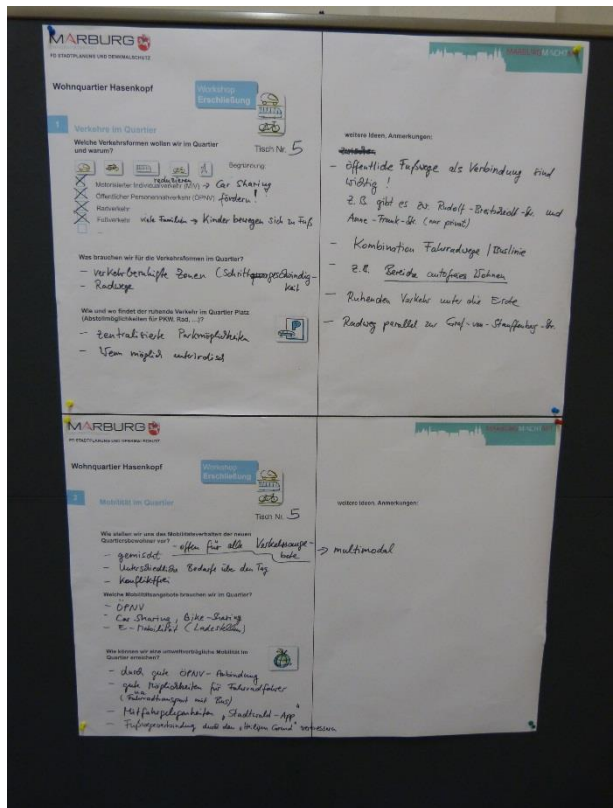 MARBURG
FD STADTPLANUNG UND DENKMALSCHUTZ
MARBURG MACHT MIT
Wohnquartier Hasenkopf
Workshop
Erschließung
1 Verkehre im Quartier
Tisch Nr. 5
Welche Verkehrsformen wollen wir im Quartier
und warum?
Begründung:
reduzieren
Motorisierter Individualverkehr (MIV) → Car Sharing
Öffentlicher Personennahverkehr (ÖPNV) fördern!
Radverkehr
Fußverkehr viele Familien → Kinder bewegen sich zu Fuß
...
Was brauchen wir für die Verkehrsformen im Quartier?
- verkehrberuhigte Zonen (Schrittgeschwindig-
keit
- Radwege
Wie und wo findet der ruhende Verkehr im Quartier Platz
(Abstellmöglichkeiten für PKW, Rad, ...)?
- Zentralisierte Parkmöglichkeiten
- Wenn möglich unterirdisch
weitere Ideen, Anmerkungen:
- öffentliche Fußwege als Verbindung sind
wichtig!
z.B. gibt es zw. Rudolf-Breitscheid-Str. und
Anne-Frank-Str. (nur privat)
- Kombination Fahrradwege / Buslinie
- z.B. Bereiche autofreies Wohnen
- Ruhenden Verkehr unter die Erde
- Radweg parallel zur Graf-von-Stauffenberg-Str.
MARBURG
FD STADTPLANUNG UND DENKMALSCHUTZ
MARBURG MACHT MIT
Wohnquartier Hasenkopf
Workshop
Erschließung
Mobilität im Quartier
Tisch Nr. 5
Wie stellen wir uns das Mobilitätsverhalten der neuen
Quartiersbewohner vor?
- offen für alle Verkehrsange-
bote → multimodal
- gemischt
- Unterschiedliche Bedarfe über den Tag
- Konfliktfrei
Welche Mobilitätsangebote brauchen wir im Quartier?
- ÖPNV
- Car Sharing, Bike-Sharing
- E-Mobilität (Ladestellen)
Wie können wir eine umweltverträgliche Mobilität im
Quartier erreichen?
- durch gute ÖPNV-Anbindung
- gute Möglichkeiten für Fahrradfahrer
(Fahrradtransport mit Bus)
- Mitfahrgelegenheiten "Stadtwald-App"
- Fußwegeverbindung durch den "Heiligen Grund" verbessern
weitere Ideen, Anmerkungen: